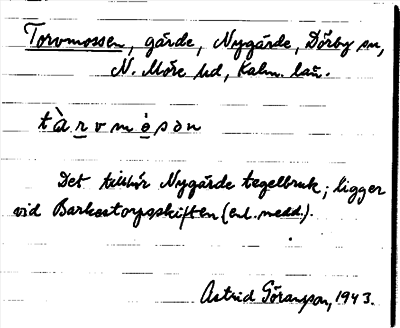 Torvmossen, gärde, Nygärde, Dörby sn,
N. Möre hd, Kalm. län.
tàrvmo̱sən
Det tillhör Nygärde tegelbruk; ligger
vid Barkestorpsskiften (enl. medd.).
Astrid Göransson, 1943.